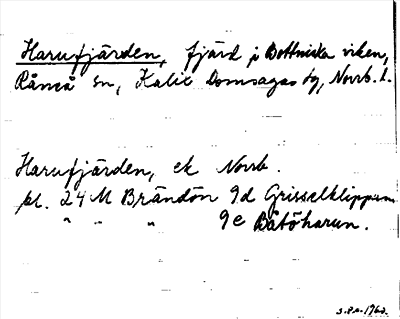 Harufjärden, fjärd i Bottniska viken,
Råneå sn, Kalix Domsagas tg, Norrb. l.
Harufjärden, ek Norrb.
bl. 24 M Brändön 9d Grisselklippan
" " " 9e Båtöharun.